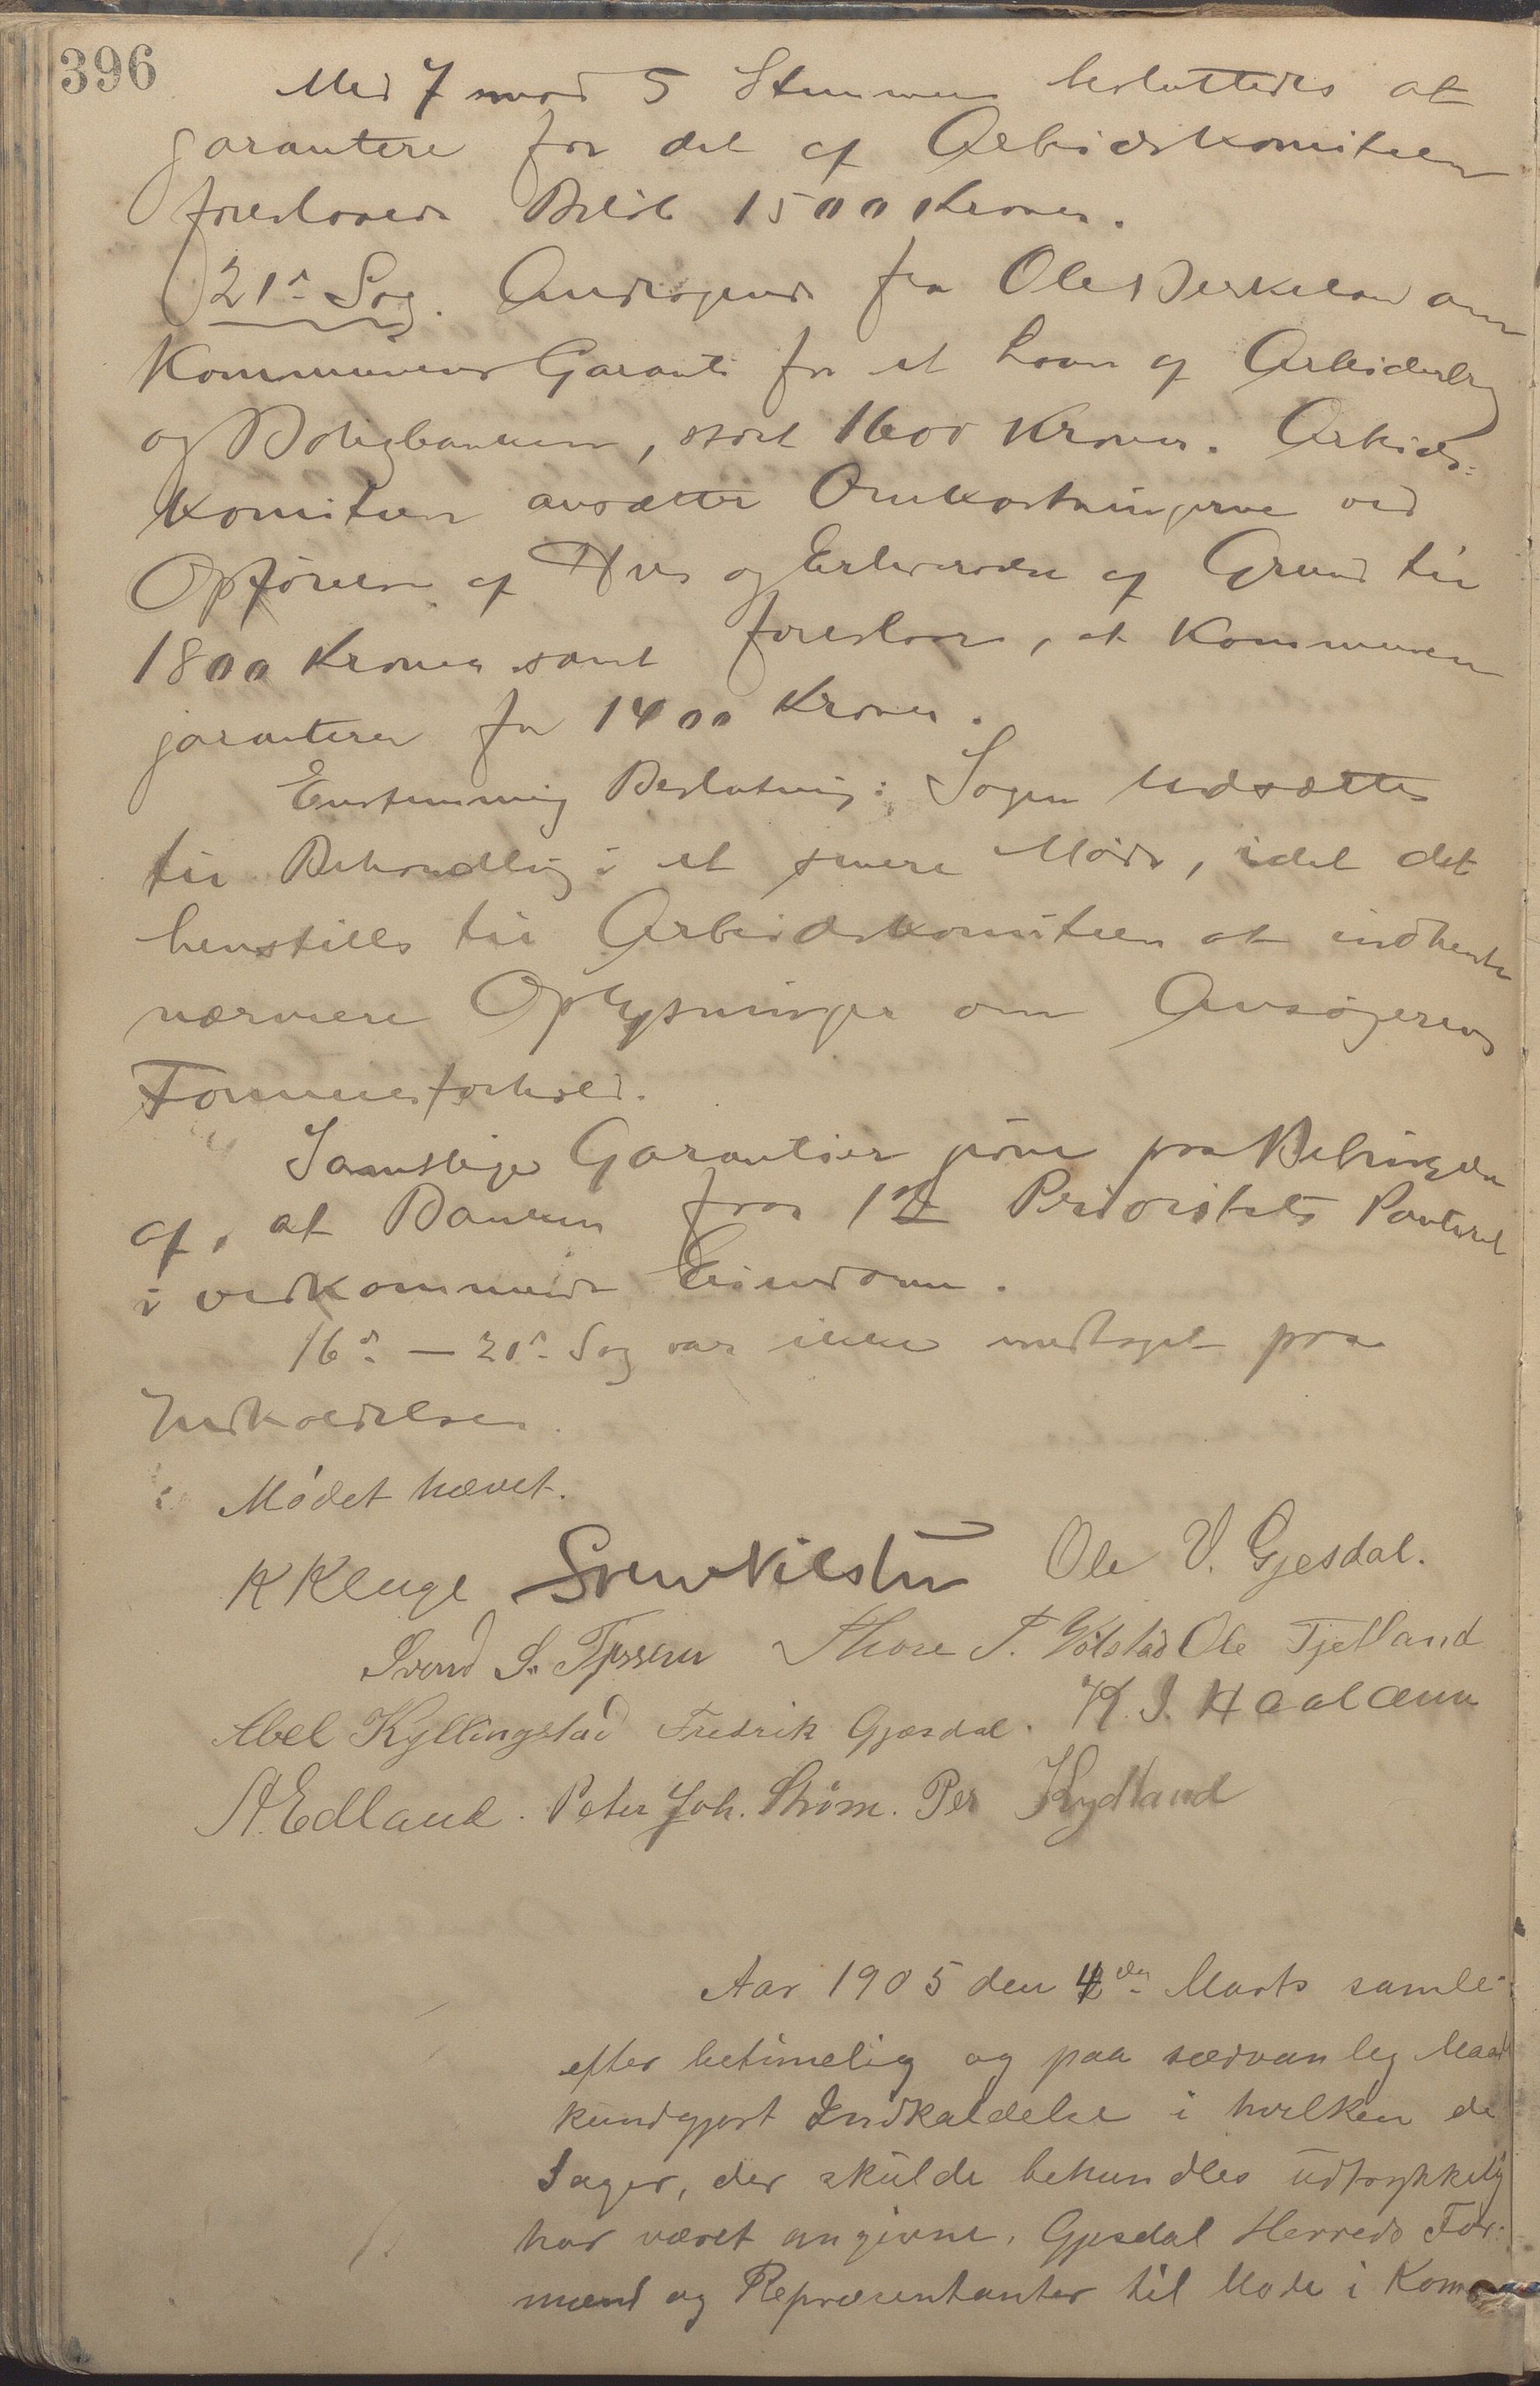 396
Med 7 mod 5 Stemmer besluttedes at
garantere for det af Arbeidskomiteen
foreslaaede Beløb 1500 Kroner.
21de Sag. Andragende fra Ole om
Kommunens Garanti for et Laan af Arbeiderbrug
og Boligbanken, stort 1600 Kroner. Arbeids-
komiteen ansætter Omkostningerne ved
Opførelse af Hus og Erhvervelse af Grund til
1800 Kroner samt foreslaar, at Kommunen
garanterer for 1400 Kroner.
Enstemmig Beslutning: Sagen udsættes
til Behandling i et senere Møde, idet det
henstilles til Arbeidskomiteen at indhente
nærmere Oplysninger om Ansøgerens
Formuesforhold.
Samtlige Garantier gives paa Betingelse
af, at Banken faar 1ste Prioritets Panteret
i vedkommende Eiendom.
16de — 21de Sag var ikke medtaget paa
Indkaldelsen.
Mødet hævet.
K Kluge Ole V. Gjesdal.
Svend S. Thore T. Ole Tjetland
Abel Kyllingstad Fredrik Gjesdal. K. J. Haaland
A. Edland. Peter Joh. Strøm. Per Kydland
Aar 1905 den 4de Marts samle-
efter betimelig og paa sædvanleg Maade
kundgjort Indkaldelse i hvilken de
Sager, der skulde behandles udtrykkelig
har været angivne, Gjesdal Herreds For-
mænd og Repræsentanter til Møde i Kom